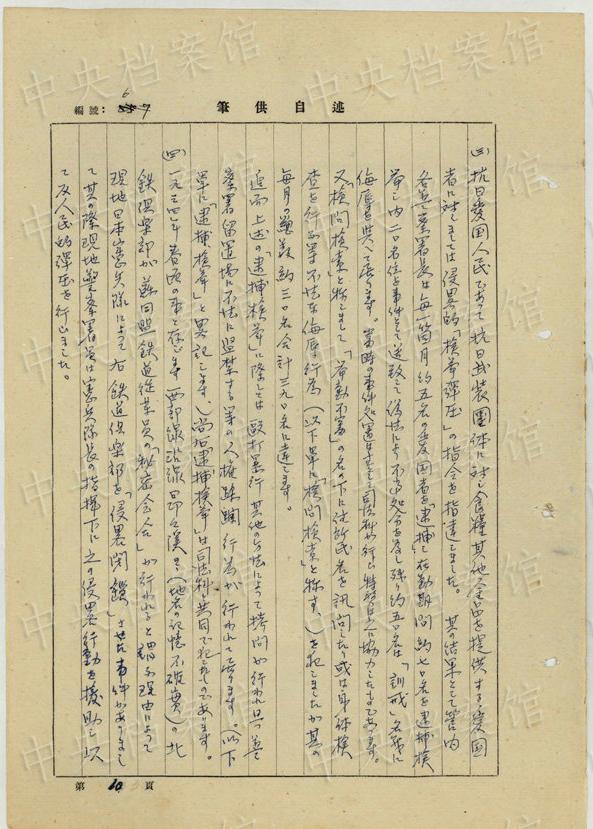 中央档案馆
編號：6
筆供自述
(三) 抗日愛国人民であって抗日武装團体に対し食糧其他金品を提供する愛国
者に対しましては侵畧的「検挙弾圧」の指令を指達しました。其の結果として管内
各蓋々署長は毎一箇月約五名の愛国者を「逮捕」し在勤期間約七〇名を逮捕検
挙し内二〇名位を事件として送致し偽法により不当処分を為し残り約五〇名は「訓戒」名義に
侮辱を與へて居ります。当時の事件処置は主として司法科が行い特務は之に協力したものであります。
又「検問検索」と称しまして「挙動不審」の名の下に住民名を訊問したり或は身体検
査を行ふ等不法な侮辱行為(以下単に「検問検索」と称す)を犯しましたが其の
毎月の種数約三〇名合計三九〇名に達します。
追而上述の「逮捕検挙」に際しては毆打暴行其他の方法によって拷問が行われ且つ蓋々
察署留置場に不法に監禁する等の人権蹂躙行為が行われて居ります。(以下
単に「逮捕検挙」と略記します。)尚右「逮捕検挙」は司法科と共同で犯したものであります。
(四) 一九三四年春頃の事と存じます 西部線沿線昂々溪(地名の記憶不確實)の北
鉄倶楽部が蘇同盟鉄道従業員の「秘密会合」が行われると謂ふ理由によって
現地日本憲兵隊によって右鉄道倶楽部を「侵畧閉鎖」させた事件がありまし
て其の際現地警察署員は憲兵隊長の指揮下に之の侵畧行動を援助し以
て反人民的彈圧を行いました。
第10頁